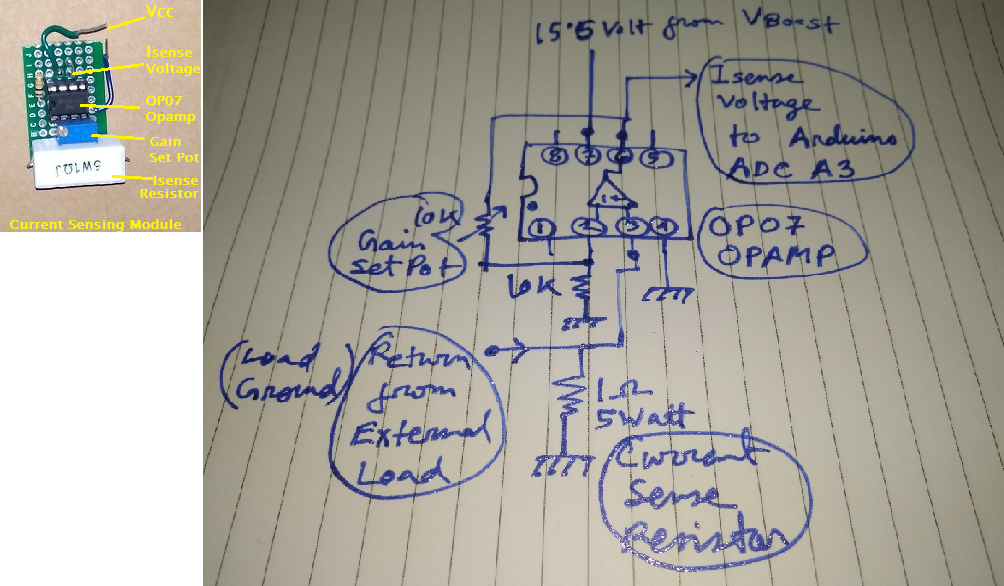 Vcc
Isense
Voltage
OP07
Opamp
Gain
Set Pot
Isense
Resistor
5W1ΩJ
Current Sensing Module
15.5 Volt from VBoost
Isense
Voltage
to Arduino
ADC A3
8 7 6 5
1 2 3 4
OP07
OPAMP
10K
Gain
Set Pot
10K
(Load
Ground)
Return
from
External
Load
1Ω
5Watt
Currant
Sense
Resistor